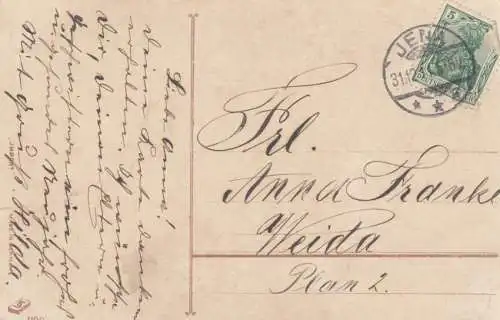 Lieb. Anna!
Deine Karte dankend
erhalten. Ich wünsche
Dir, Deinen Eltern u.
Geschwistern ein frohes
u. gesundes Neujahr.
Mit Gruß
Hilda.
JENA
31.12
5
Frl.
Anna Franke
Weida
Plan 2.